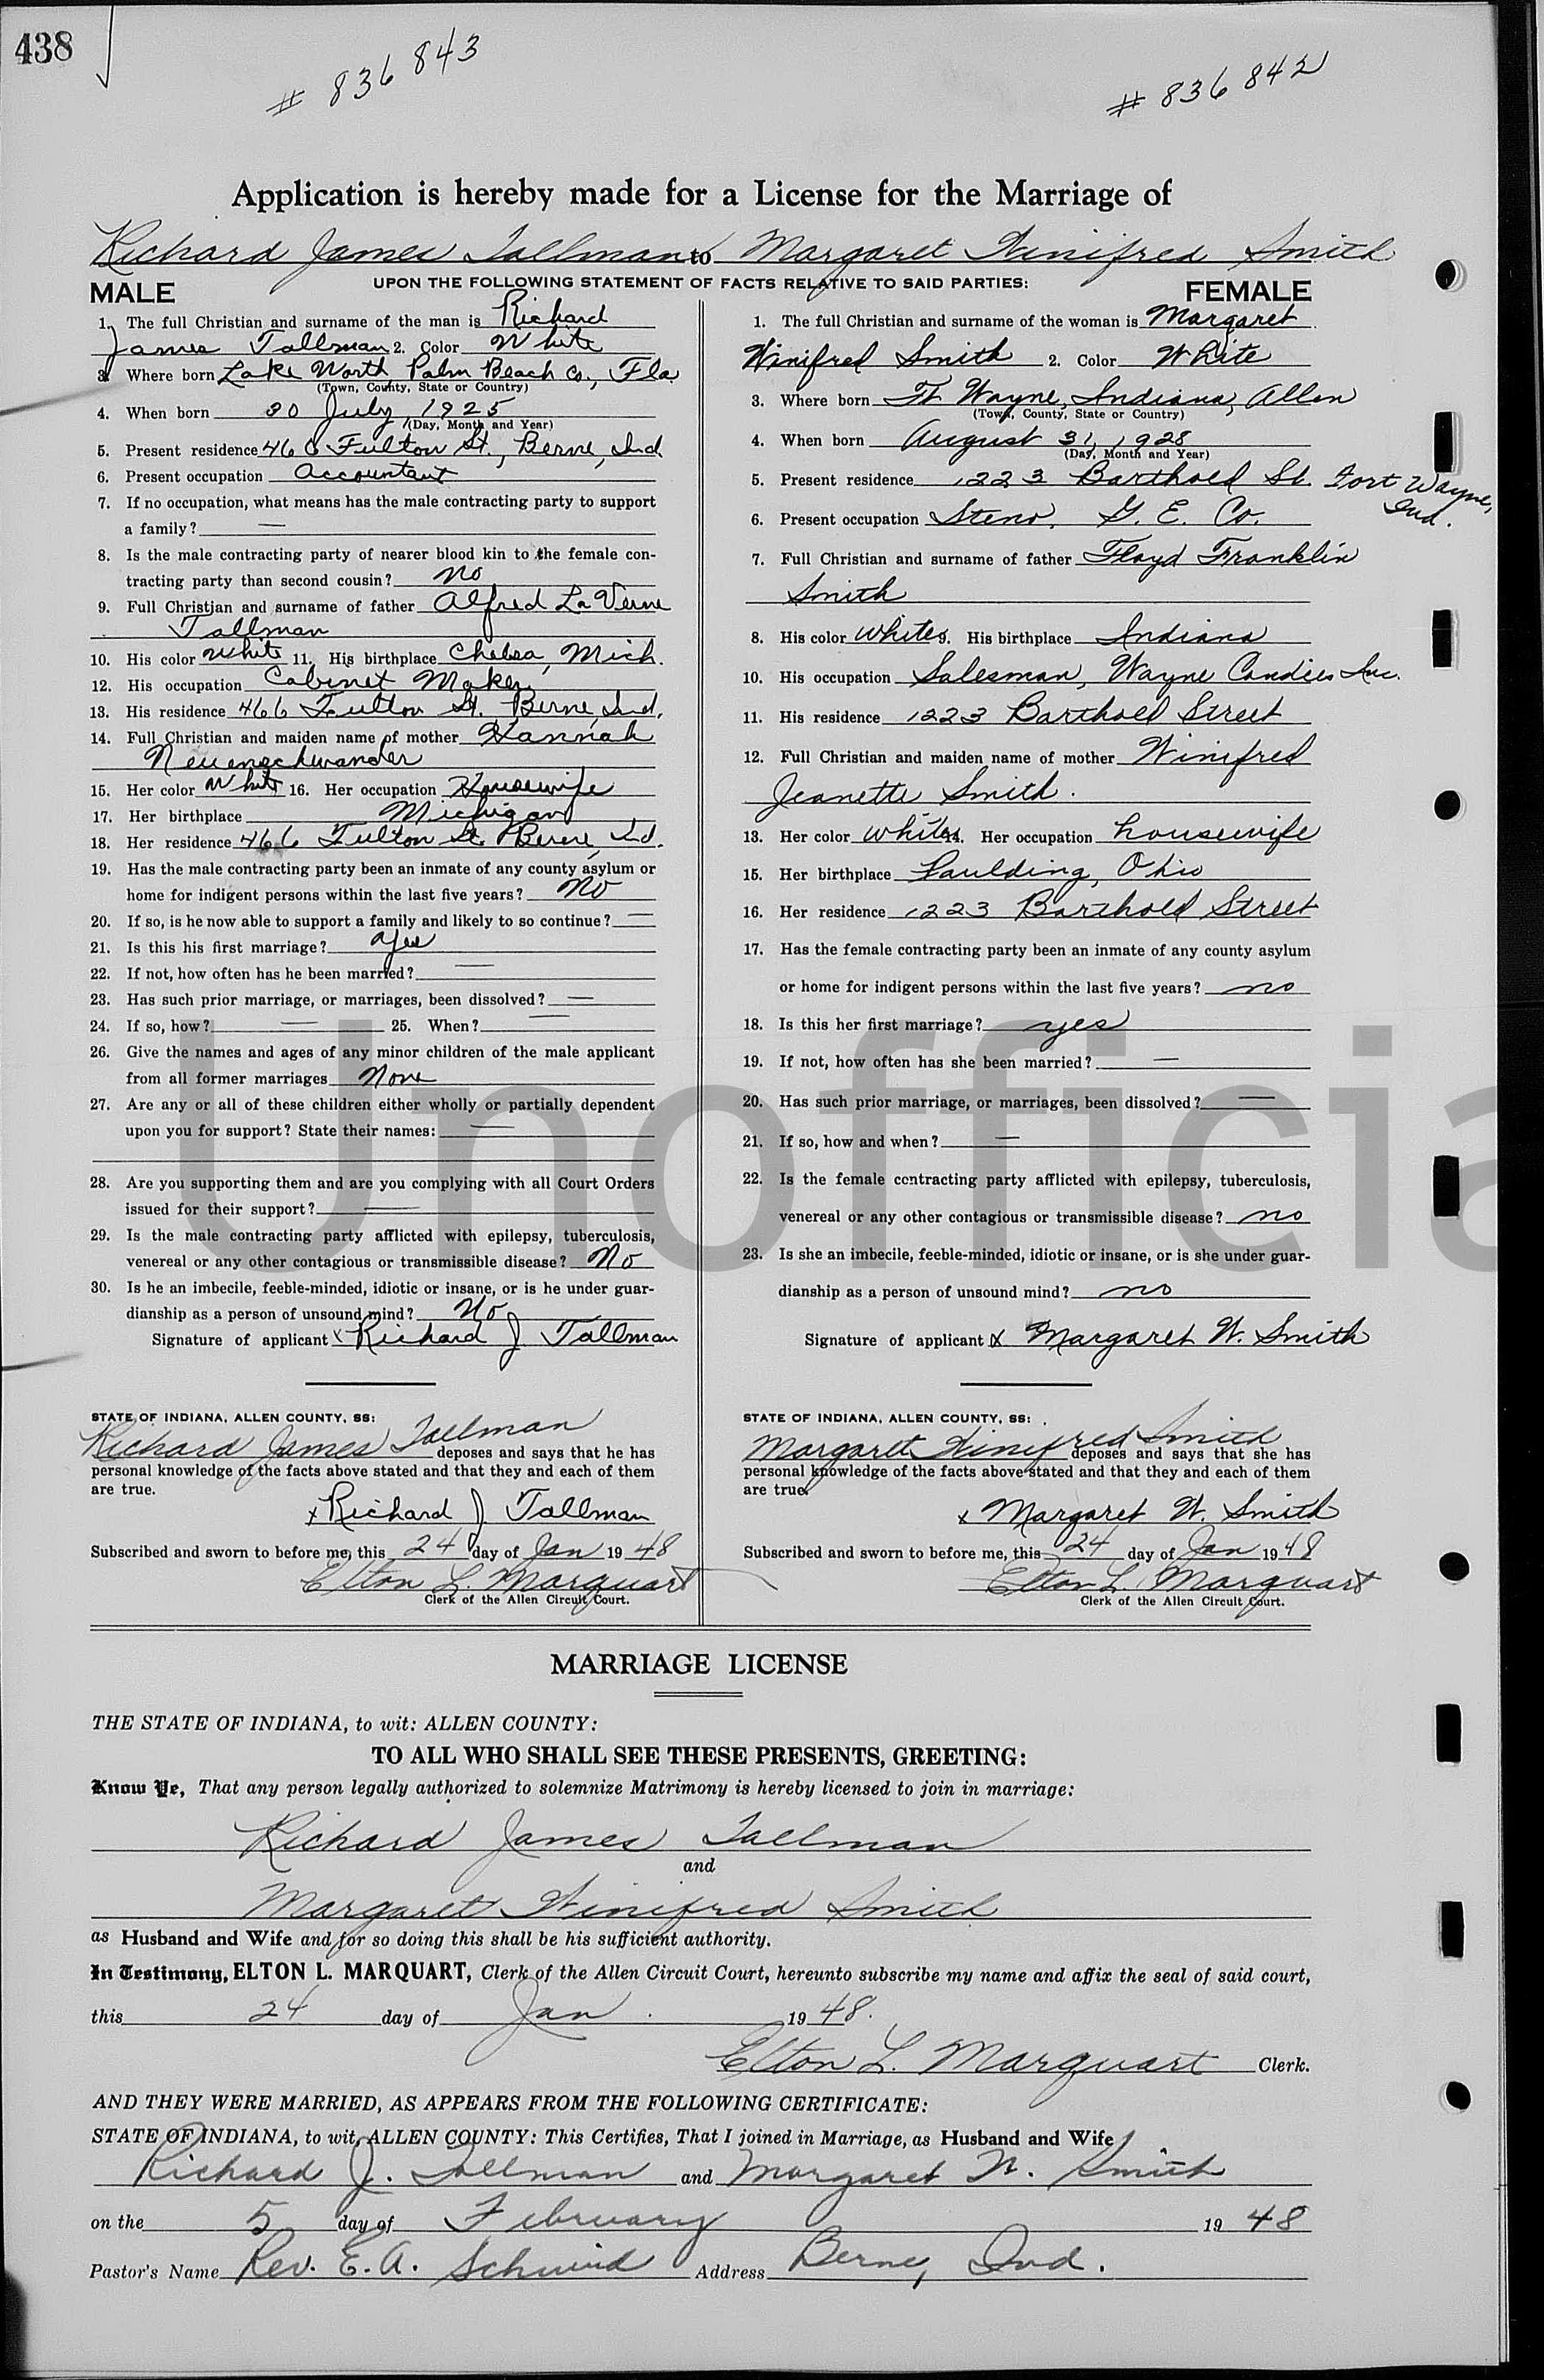 438
# 836 843
# 836 842
Application is hereby made for a License for the Marriage of
Richard James Tallman to Margaret Winifred Smith
UPON THE FOLLOWING STATEMENT OF FACTS RELATIVE TO SAID PARTIES:
MALE
1. The full Christian and surname of the man is Richard
James Tallman 2. Color White
3. Where born Lake Worth Palm Beach Co., Fla
(Town, County, State or Country)
4. When born 30 July, 1925
(Day, Month and Year)
5. Present residence 466 Fulton St., Berne, Ind
6. Present occupation Accountant
7. If no occupation, what means has the male contracting party to support
a family? —
8. Is the male contracting party of nearer blood kin to the female con-
tracting party than second cousin? no
9. Full Christian and surname of father Alfred La Verne
Tallman
10. His color White 11. His birthplace Chelsea, Mich.
12. His occupation Cabinet Maker
13. His residence 466 Fulton St. Berne, Ind.
14. Full Christian and maiden name of mother Hannah
Neuenschwander
15. Her color White 16. Her occupation Housewife
17. Her birthplace Michigan
18. Her residence 466 Fulton St. Berne, Ind.
19. Has the male contracting party been an inmate of any county asylum or
home for indigent persons within the last five years? No
20. If so, is he now able to support a family and likely to so continue? —
21. Is this his first marriage? yes
22. If not, how often has he been married? —
23. Has such prior marriage, or marriages, been dissolved? —
24. If so, how? — 25. When? —
26. Give the names and ages of any minor children of the male applicant
from all former marriages None
27. Are any or all of these children either wholly or partially dependent
upon you for support? State their names: —
28. Are you supporting them and are you complying with all Court Orders
issued for their support? —
29. Is the male contracting party afflicted with epilepsy, tuberculosis,
venereal or any other contagious or transmissible disease? No
30. Is he an imbecile, feeble-minded, idiotic or insane, or is he under guar-
dianship as a person of unsound mind? No
Signature of applicant x Richard J Tallman
STATE OF INDIANA, ALLEN COUNTY, SS:
Richard James Tallman deposes and says that he has
personal knowledge of the facts above stated and that they and each of them
are true.
x Richard J Tallman
Subscribed and sworn to before me, this 24 day of Jan 1948
Elton L. Marquart
Clerk of the Allen Circuit Court.
FEMALE
1. The full Christian and surname of the woman is Margaret
Winifred Smith 2. Color White
3. Where born Ft Wayne, Indiana, Allen
(Town, County, State or Country)
4. When born August 31, 1928
(Day, Month and Year)
5. Present residence 1223 Barthold St. Fort Wayne,
Ind.
6. Present occupation Steno. G. E. Co.
7. Full Christian and surname of father Floyd Franklin
Smith
8. His color White 9. His birthplace Indiana
10. His occupation Salesman, Wayne Candies Inc.
11. His residence 1223 Barthold Street
12. Full Christian and maiden name of mother Winifred
Jeanette Smith.
13. Her color White 14. Her occupation housewife
15. Her birthplace Paulding, Ohio
16. Her residence 1223 Barthold Street
17. Has the female contracting party been an inmate of any county asylum
or home for indigent persons within the last five years? no
18. Is this her first marriage? yes
19. If not, how often has she been married? —
20. Has such prior marriage, or marriages, been dissolved? —
21. If so, how and when? —
22. Is the female contracting party afflicted with epilepsy, tuberculosis,
venereal or any other contagious or transmissible disease? no
23. Is she an imbecile, feeble-minded, idiotic or insane, or is she under guar-
dianship as a person of unsound mind? no
Signature of applicant x Margaret W. Smith
STATE OF INDIANA, ALLEN COUNTY, SS:
Margaret Winifred Smith deposes and says that she has
personal knowledge of the facts above stated and that they and each of them
are true.
x Margaret W. Smith
Subscribed and sworn to before me, this 24 day of Jan 1948
Elton L. Marquart
Clerk of the Allen Circuit Court.
Unofficia
MARRIAGE LICENSE
THE STATE OF INDIANA, to wit: ALLEN COUNTY:
TO ALL WHO SHALL SEE THESE PRESENTS, GREETING:
Know Ye, That any person legally authorized to solemnize Matrimony is hereby licensed to join in marriage:
Richard James Tallman
and
Margaret Winifred Smith
as Husband and Wife and for so doing this shall be his sufficient authority.
In Testimony, ELTON L. MARQUART, Clerk of the Allen Circuit Court, hereunto subscribe my name and affix the seal of said court,
this 24 day of Jan. 1948.
Elton L. Marquart Clerk.
AND THEY WERE MARRIED, AS APPEARS FROM THE FOLLOWING CERTIFICATE:
STATE OF INDIANA, to wit, ALLEN COUNTY: This Certifies, That I joined in Marriage, as Husband and Wife
Richard J. Tallman and Margaret W. Smith
on the 5 day of February 1948
Pastor's Name Rev. E. A. Schmid Address Berne, Ind.